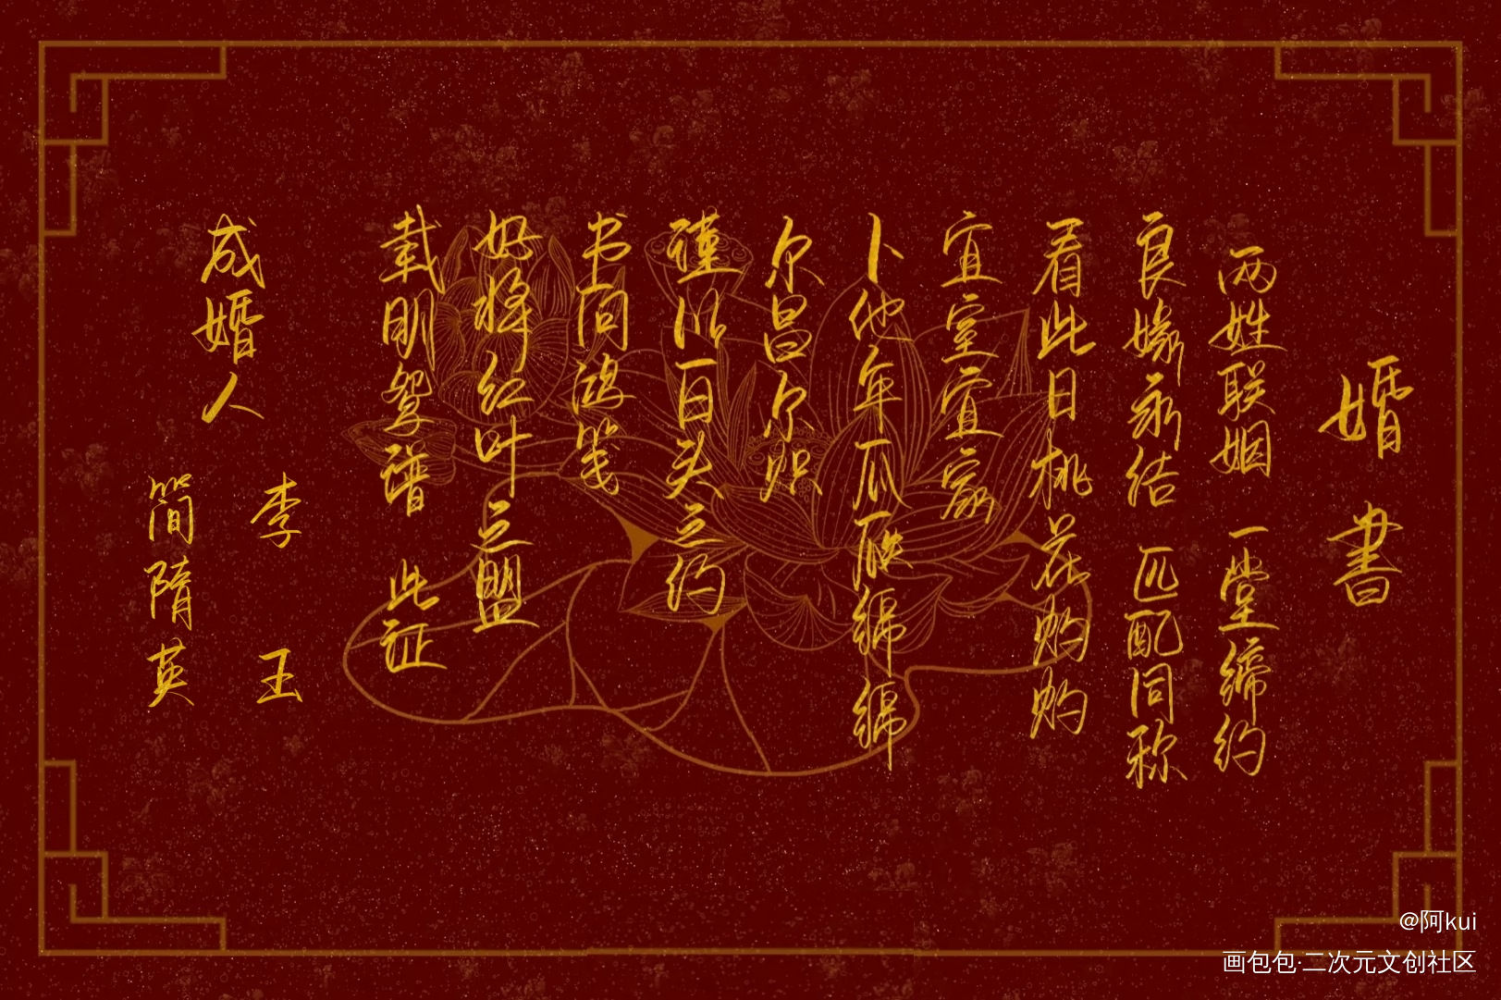 婚書
两姓联姻 一堂缔约
良缘永结 匹配同称
看此日桃花灼灼
宜室宜家
卜他年瓜瓞绵绵
尔昌尔炽
谨以白头之约
书向鸿笺
好将红叶之盟
载明鸳谱 此证
成婚人
李 玉
简隋英
@阿kui
画包包·二次元文创社区